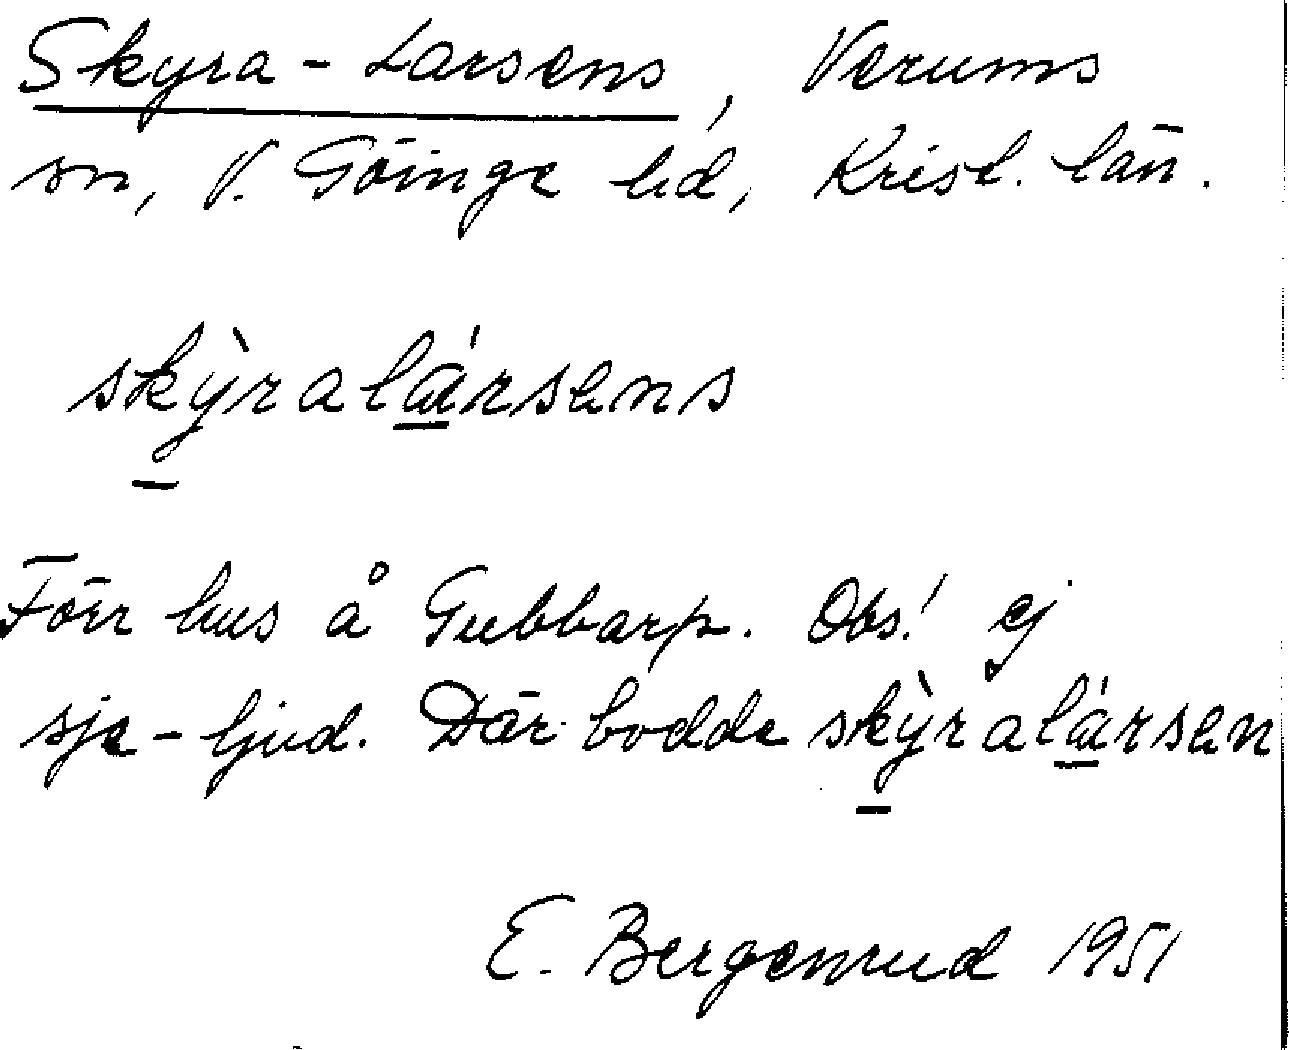 Skyra-Larsens, Verums
sn, V. Göinge hd, Krist. län.
skỳralársens
Förr hus å Gubbarp. Obs! ej
sje-ljud. Där bodde skỳralársen
E. Bergenrud 1951